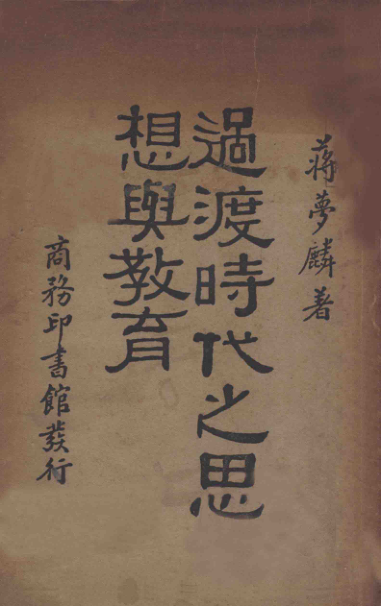 蔣夢麟著
過渡時代之思
想與教育
商務印書館發行